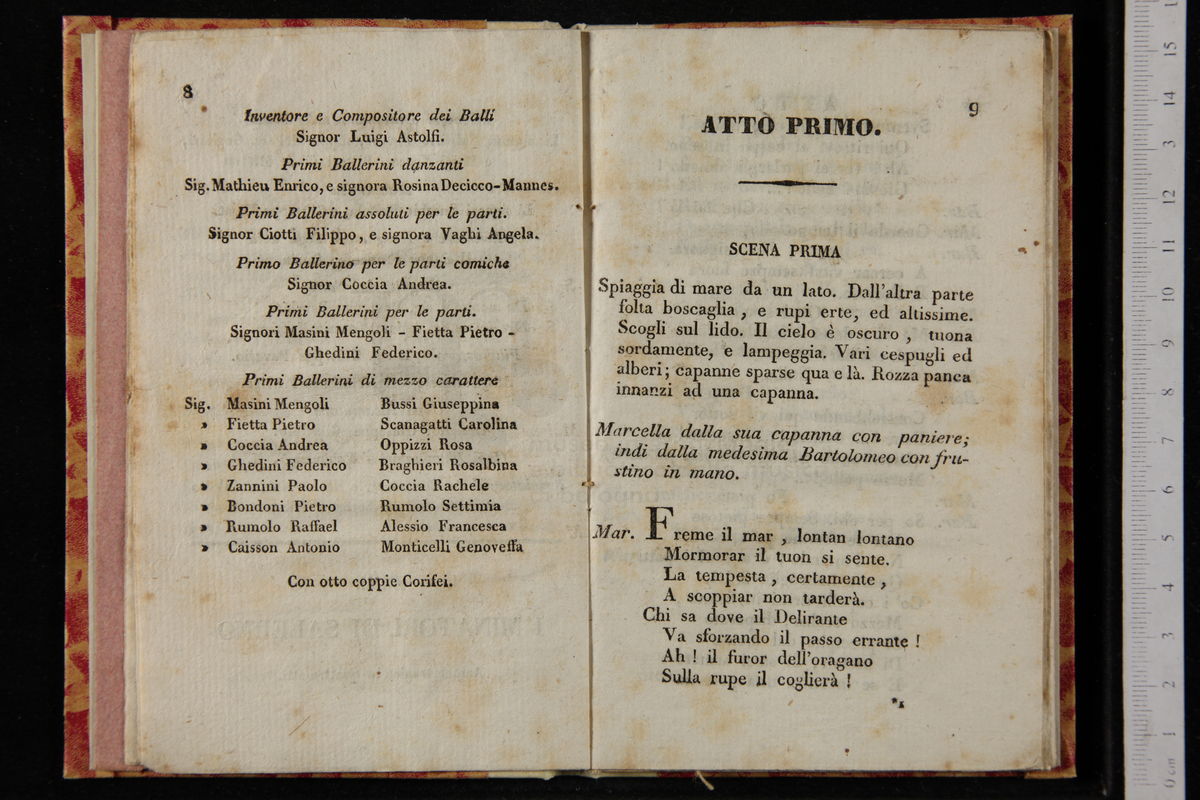 8
Inventore e Compositore dei Balli
Signor Luigi Astolfi.
Primi Ballerini danzanti
Sig. Mathieu Enrico, e signora Rosina Decicco-Mannes.
Primi Ballerini assoluti per le parti.
Signor Ciotti Filippo, e signora Vaghi Angela.
Primo Ballerino per le parti comiche
Signor Coccia Andrea.
Primi Ballerini per le parti.
Signori Masini Mengoli - Fietta Pietro -
Ghedini Federico.
Primi Ballerini di mezzo carattere
Sig. Masini Mengoli Bussi Giuseppina
» Fietta Pietro Scanagatti Carolina
» Coccia Andrea Oppizzi Rosa
» Ghedini Federico Braghieri Rosalbina
» Zannini Paolo Coccia Rachele
» Bondoni Pietro Rumolo Settimia
» Rumolo Raffael Alessio Francesca
» Caisson Antonio Monticelli Genoveffa
Con otto coppie Corifei.
9
ATTO PRIMO.
SCENA PRIMA
Spiaggia di mare da un lato. Dall'altra parte
folta boscaglia, e rupi erte, ed altissime.
Scogli sul lido. Il cielo è oscuro, tuona
sordamente, e lampeggia. Vari cespugli ed
alberi; capanne sparse qua e là. Rozza panca
innanzi ad una capanna.
Marcella dalla sua capanna con paniere;
indi dalla medesima Bartolomeo con fru-
stino in mano.
Mar. Freme il mar, lontan lontano
Mormorar il tuon si sente.
La tempesta, certamente,
A scoppiar non tarderà.
Chi sa dove il Delirante
Va sforzando il passo errante!
Ah! il furor dell'oragano
Sulla rupe il coglierà!
0 cm 1 2 3 4 5 6 7 8 9 10 11 12 13 14 15